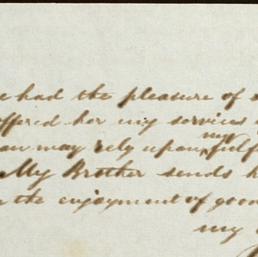 had the pleasure of
offered her my services
may rely upon my
My Brother sends
the enjoyment of good
my